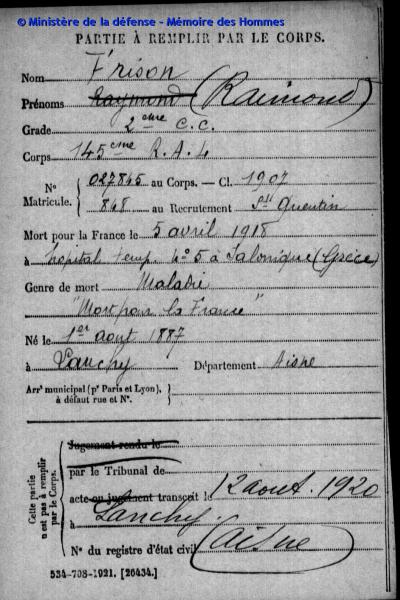 © Ministère de la défense - Mémoire des Hommes
PARTIE À REMPLIR PAR LE CORPS.
Nom Frison
Prénoms Raymond (Raimond)
Grade 2eme C.C.
Corps 145eme R.A.L
N° 027845 au Corps. — Cl. 1907
Matricule. 848 au Recrutement St Quentin
Mort pour la France le 5 avril 1918
à hôpital temp. n° 5 à Salonique (Grèce)
Genre de mort Maladie
"Mort pour la France"
Né le 1er août 1887
à Lanchy Département Aisne
Arrt municipal (pr Paris et Lyon),
à défaut rue et N°.
Cette partie
n'est pas à remplir
par le Corps.
Jugement rendu le
par le Tribunal de
acte ou jugement transcrit le 12 août 1920
à Lanchy
N° du registre d'état civil (Aisne)
534-708-1921. [26434.]